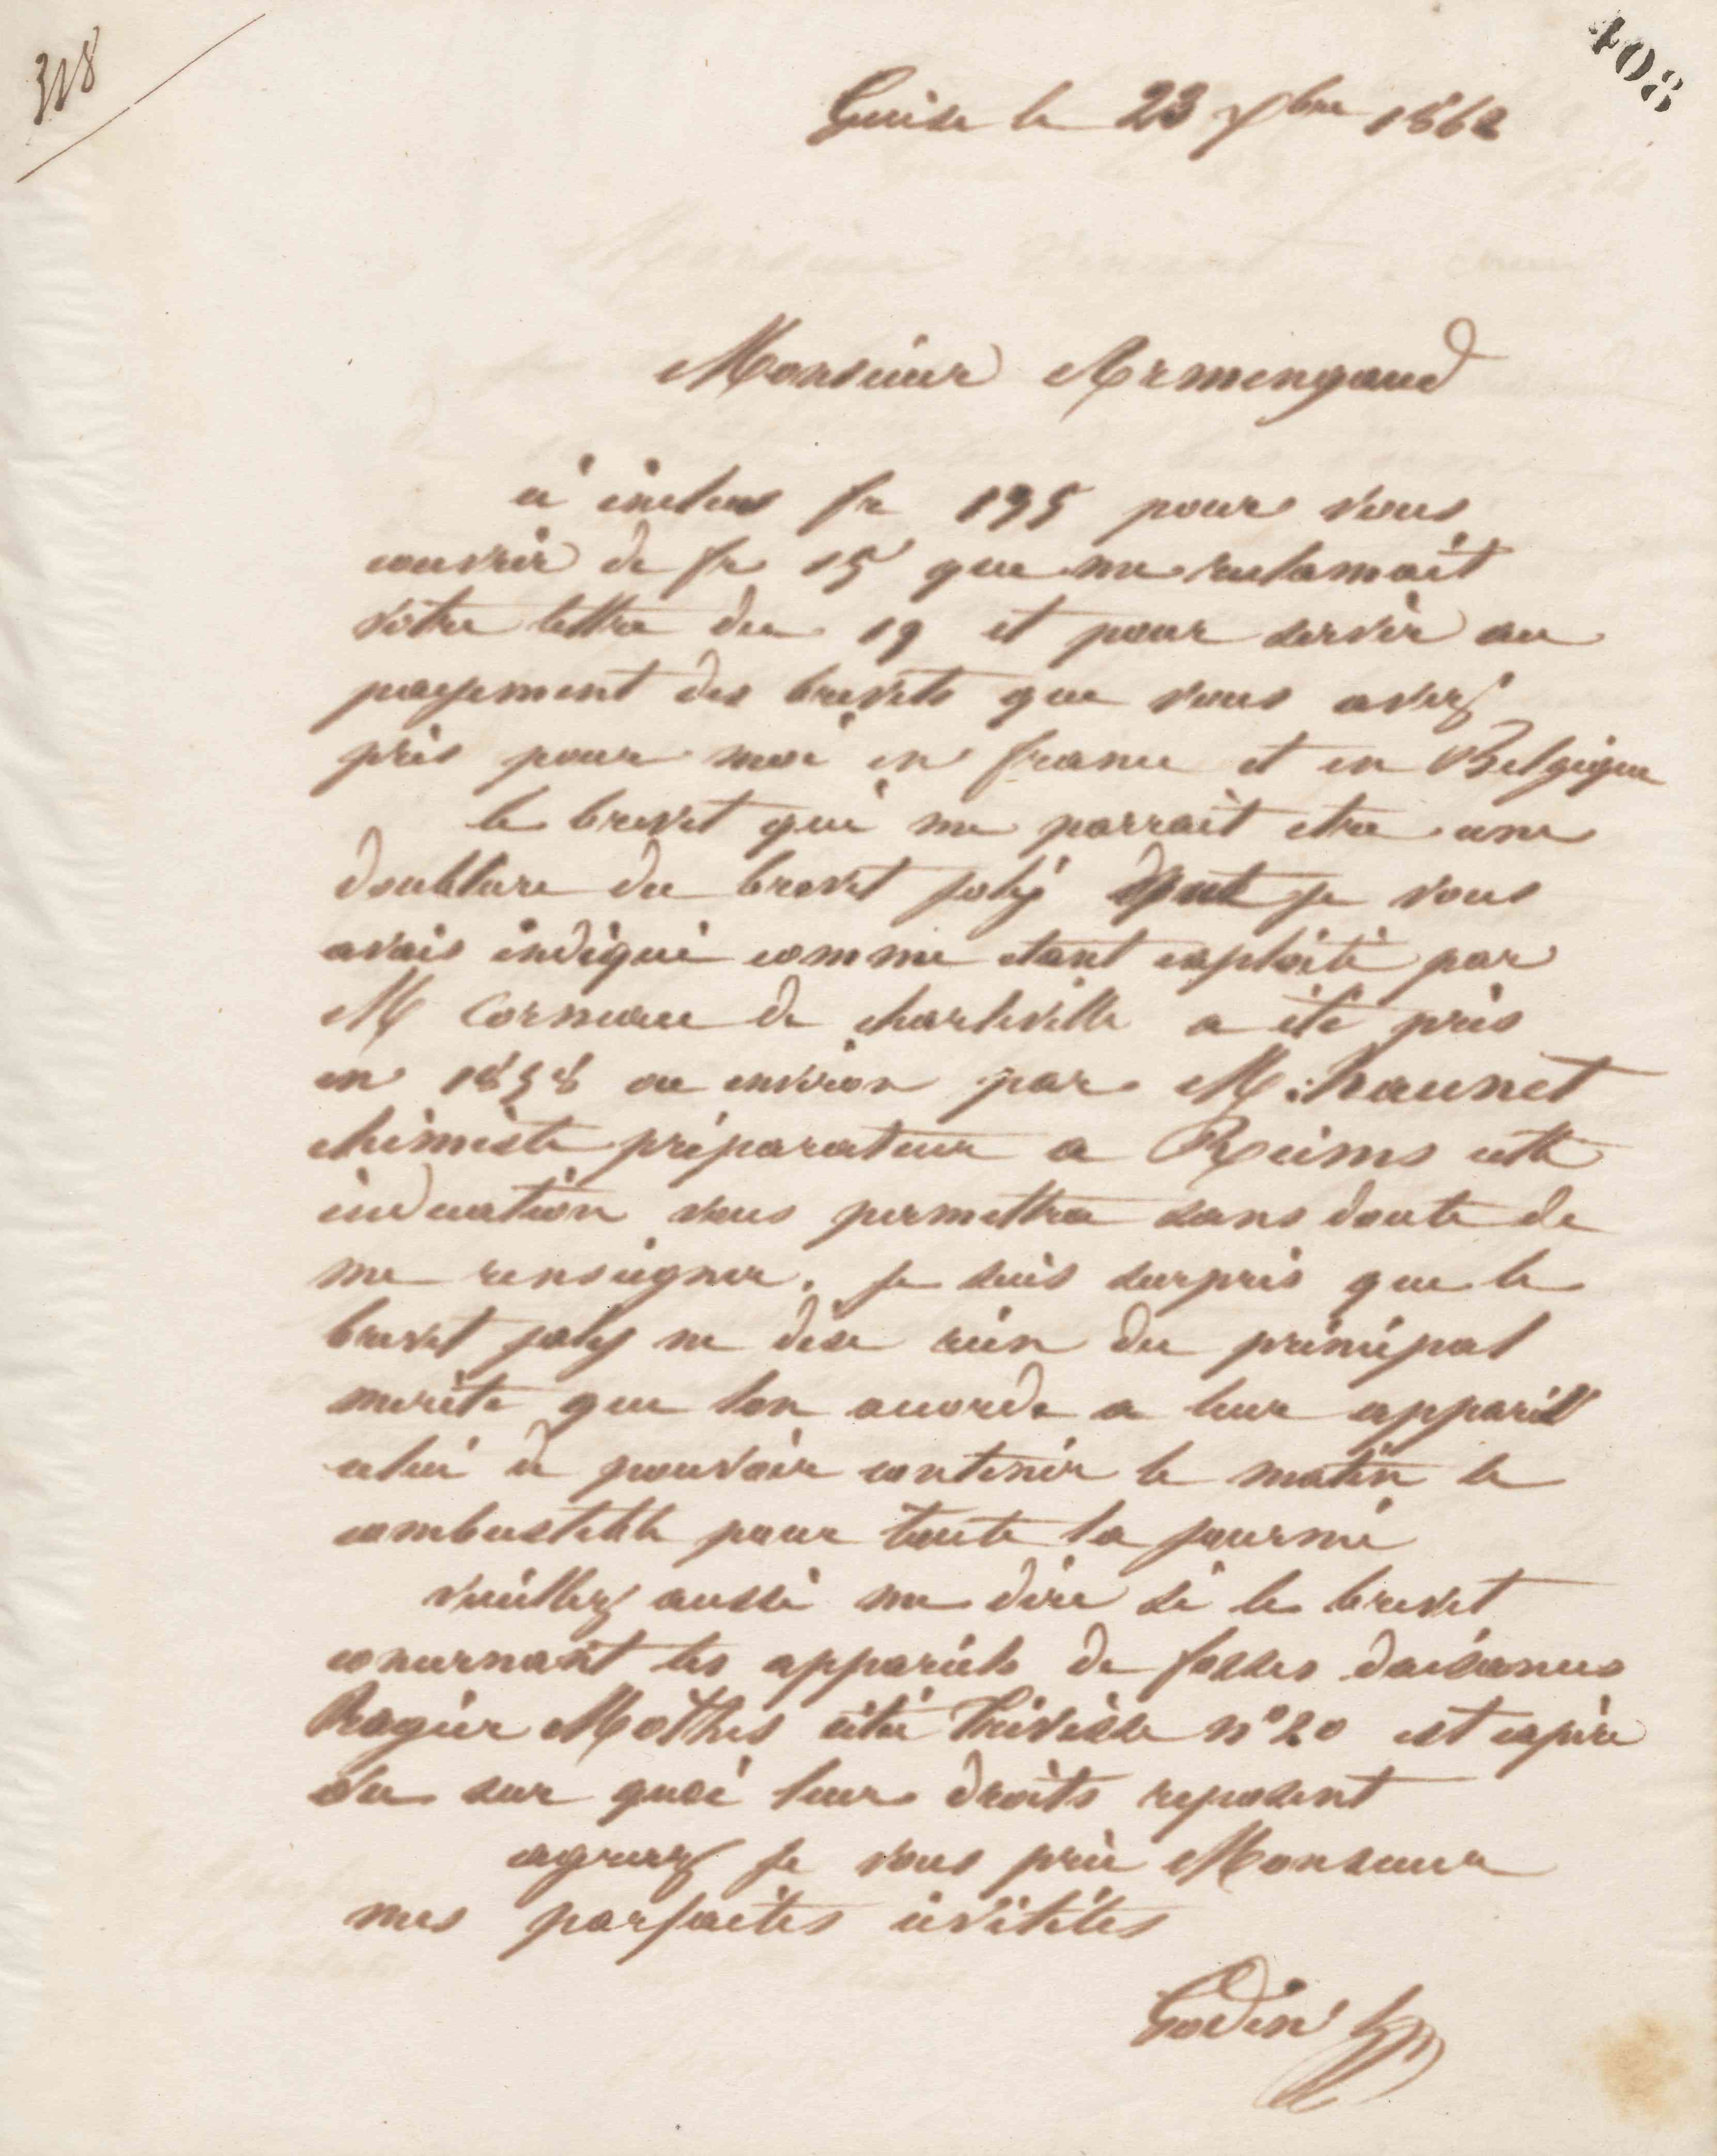 318
408
Guise le 23 xbre 1862
Monsieur Armengaud
ci inclus fr 195 pour vous
couvrir de fr 15 que me reclamait
votre lettre du 19 et pour servir au
payement des brevets que vous avez
pris pour moi en france et en Belgique
le brevet qui me parrait etre une
doublure du brevet joly dont je vous
avais indiqué comme etant exploité par
M Corneau de charleville a été pris
en 1858 ou environ par M.
chimiste préparateur a Reims cette
indication vous permettra sans doute de
me renseigner. je suis surpris que le
brevet joly ne dise rien du principal
merite que lon accorde a leur appareil
celui de pouvoir contenir le matin le
combustible pour toute la journé
veuillez aussi me dire si le brevet
concernant les appareils de fosses daisances
Rogier Mothes cité Trévise n° 20 est expiré
ou sur quoi leurs droits reposent
agreez je vous prie Monsieur
mes parfaites civilités
Godin